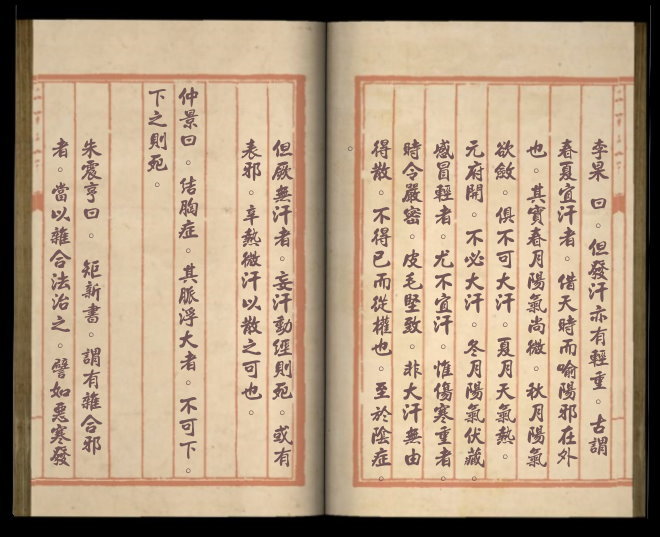 李杲 曰。但發汗亦有輕重。古謂
春夏宜汗者。借天時而喻陽邪在外
也。其實春月陽氣尚微。秋月陽氣
欲斂。俱不可大汗。夏月天氣熱。
元府開。不必大汗。冬月陽氣伏藏。
感冒輕者。尤不宜汗。惟傷寒重者。
時令嚴密。皮毛堅致。非大汗無由
得散。不得已而從權也。至於陰症
。
但厥無汗者。妄汗動經則死。或有
表邪。辛熱微汗以散之可也。
仲景曰。结胸症。其脈浮大者。不可下。
下之則死。
朱震亨曰。 矩新書。謂有雜合邪
者。當以雜合法治之。譬如惡寒發